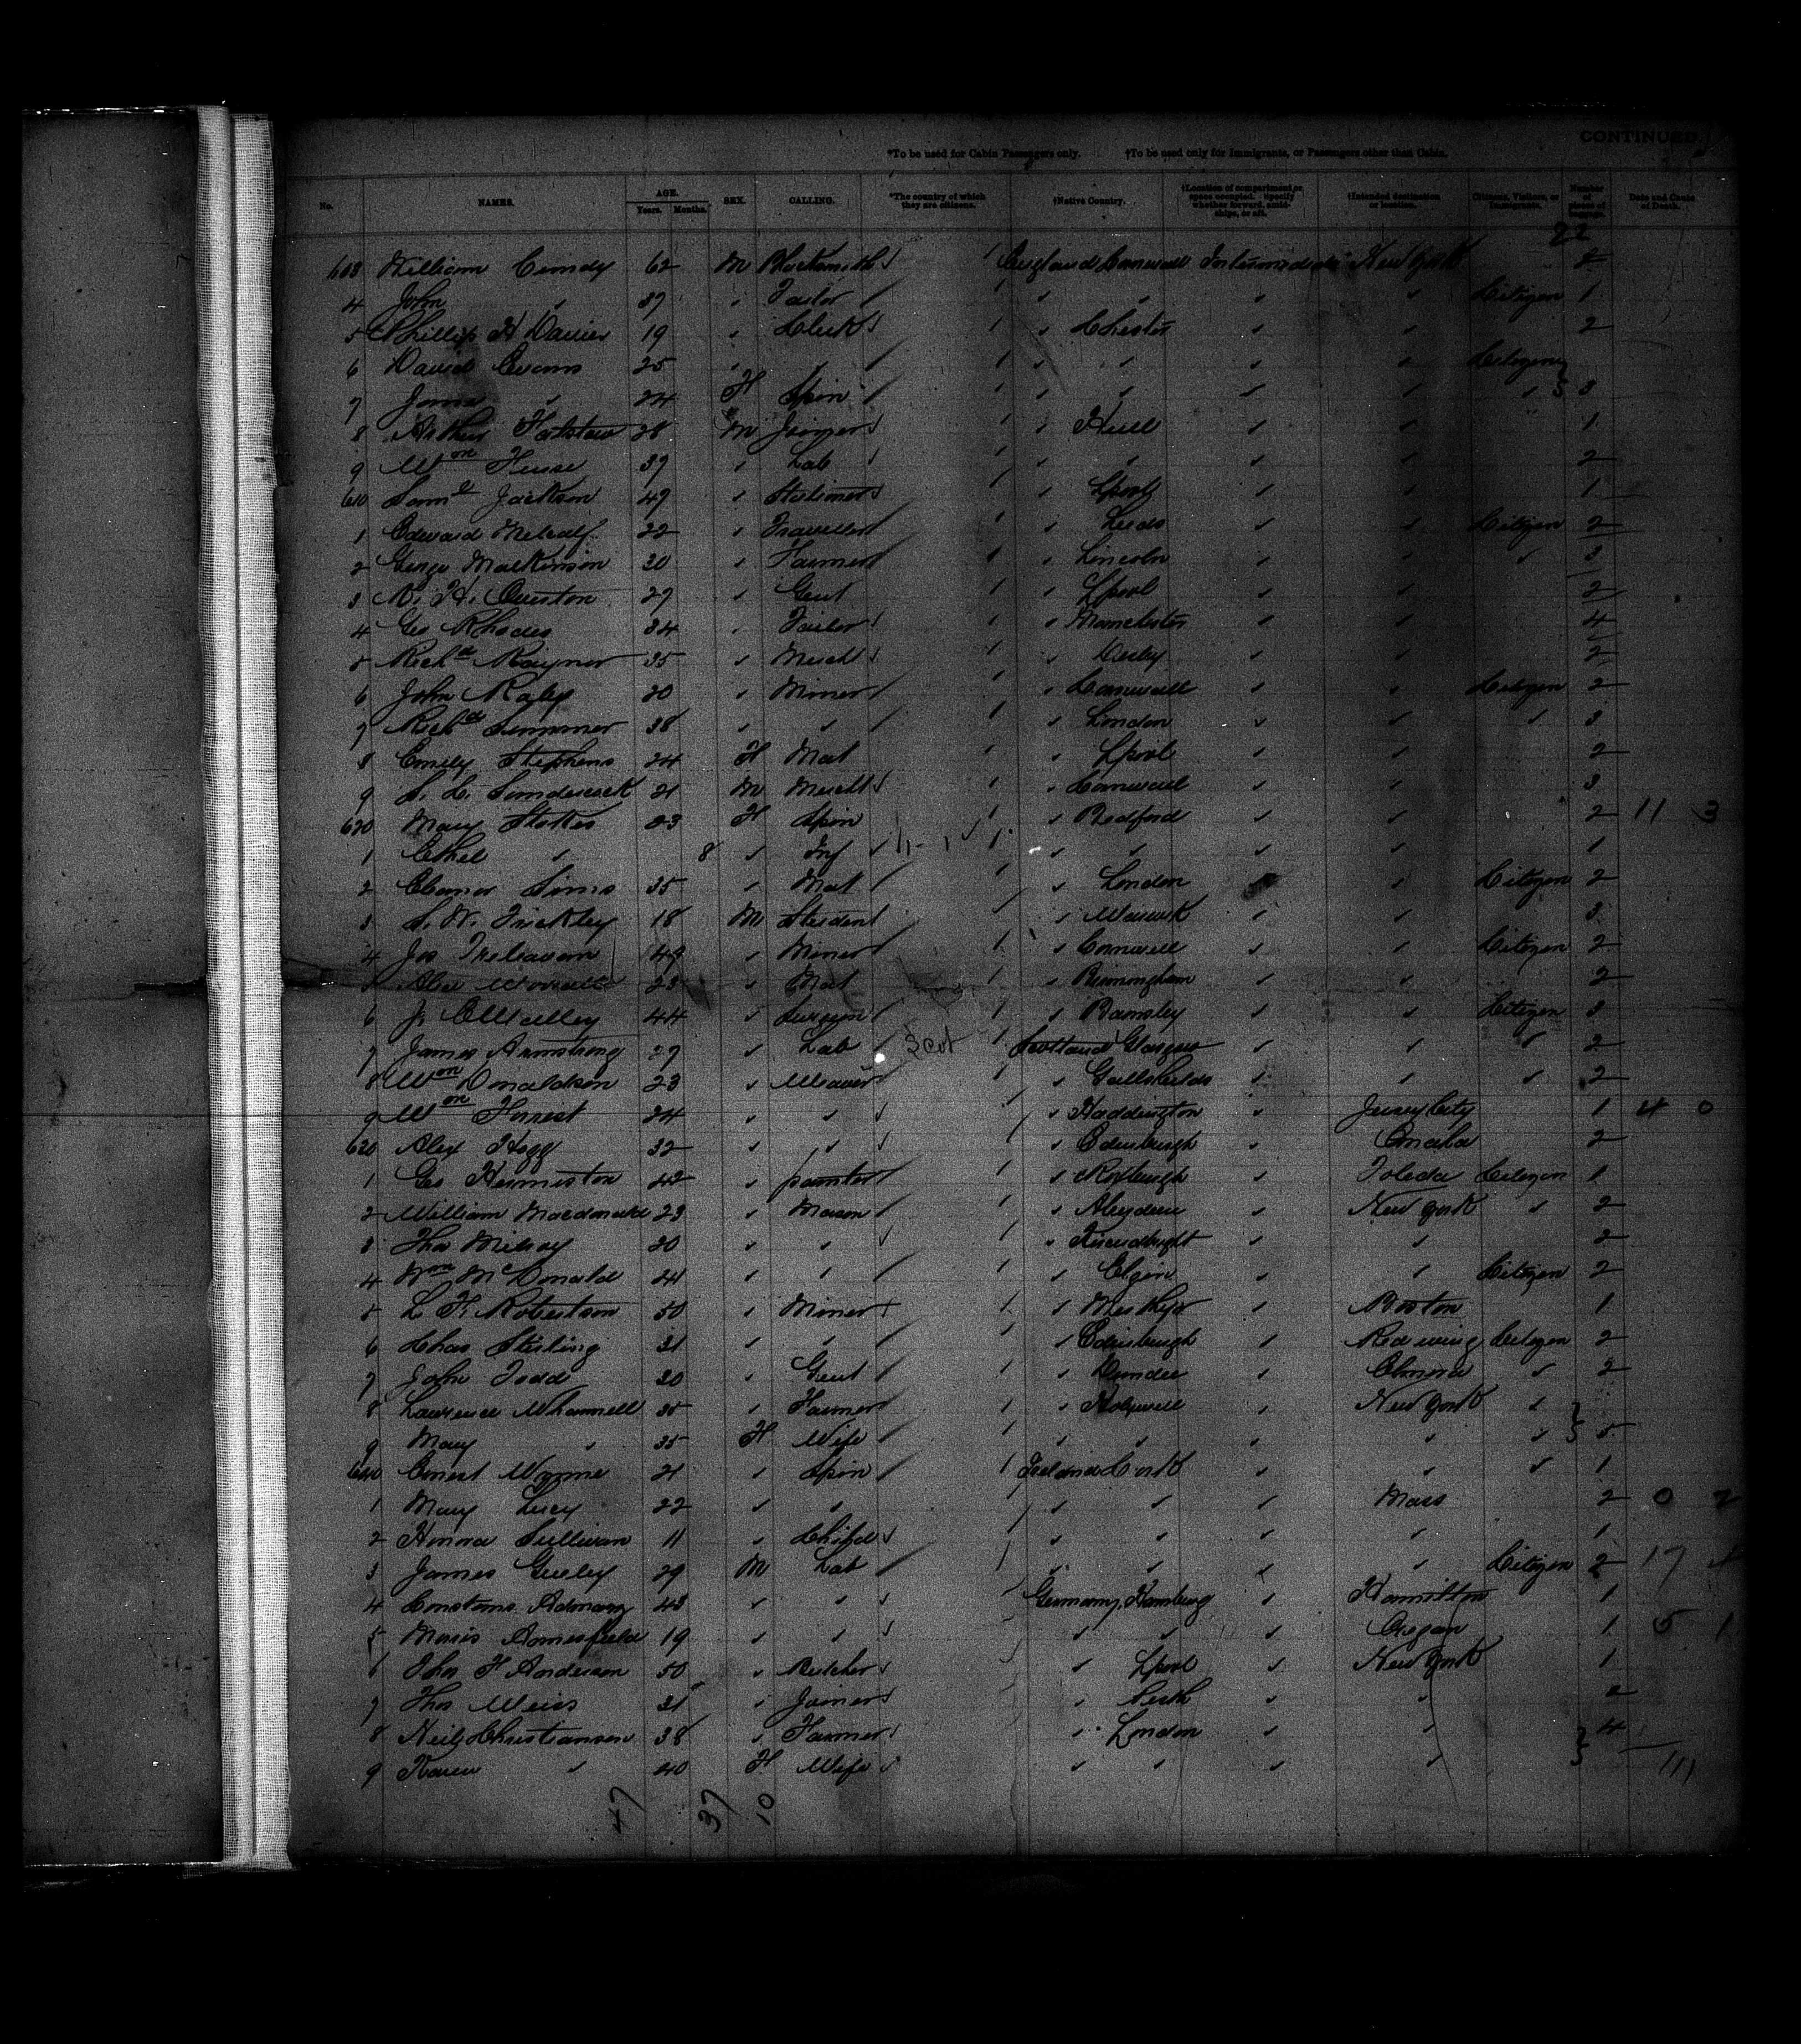 CONTINUED.
*To be used for Cabin Passengers only. †To be used only for Immigrants, or Passengers other than Cabin.
No. NAMES. AGE. Years. Months. SEX. CALLING. *The country of which they are citizens. †Native Country. †Location of compartment or space occupied. Specify whether forward, amidships, or aft. †Intended destination or location. Citizens, Visitors, or Immigrants. Number of pieces of baggage. Date and Cause of Death.
22
603 William Cundy 62 M Blacksmith England Cornwall Intermediate New York 2
4 John " 37 " Tailor " " " " Citizen 1
5 Phillip H Davies 19 " Clerk " Chester " " 2
6 David Evans 25 " " " " " " Citizen
7 Jane " 24 F Spin " " " " " 3
8 Arthur 28 M Joiner " Hull " " 1
9 Wm 37 " Lab " " " " 2
610 Saml Jackson 49 " Stationer " Lpool " " 1
1 Edward Metcalf 22 " Traveller " Leeds " " Citizen 2
2 George Makinson 30 " Farmer " Lincoln " " " 3
3 R. H. Ouston 27 " Gent " Lpool " " 2
4 Geo Rhodes 34 " Tailor " Manchester " " 4
5 Richd Raynor 35 " Mercht " Derby " " 2
6 John Raby 20 " Miner " Cornwall " " Citizen 2
7 Richd 38 " " " London " " " 3
8 Emily Stephens 24 F Mat " Lpool " " 2
9 S. L. 21 M Mercht " Cornwall " " 3
620 Mary Stokes 23 F Spin " Bedford " " 2 11 3
1 Ethel " 8 " Inf " " " " 1
2 Eleanor Sims 35 " Mat " London " " Citizen 2
3 S. W. Trickley 18 M Student " Warwick " " 3
4 Jos Treleaven 49 " Miner " Cornwall " " Citizen 2
23 " Mat " Birmingham " " 2
6 J. 44 " Surgeon " Barnsley " " Citizen 3
7 James Armstrong 27 " Lab Scot Scotland Glasgow " " " 2
8 Wm Donaldson 23 " Weaver " Gallshields " " " 2
9 Wm Forrest 24 " " " Haddington " Jersey City 1 4 0
630 Alex Hogg 32 " " " Edinburgh " Omaha 2
1 Geo Hermiston 42 " painter " Roxburgh " Toledo Citizen 1
2 William Macdonald 23 " Mason " Aberdeen " New York " 2
3 Thos Milroy 20 " " " " " 2
4 Wm McDonald 24 " " " Elgin " " Citizen 2
5 L. H. Robertson 50 " Miner " " Boston 1
6 Chas Stirling 31 " " " Edinburgh " Red wing Citizen 2
7 John Todd 30 " Gent " Dundee " Elmira " 2
8 Lawrence Whannell 35 " Farmer " " New York "
9 Mary " 35 F Wife " " " " " 5
640 Ernest Wynne 21 " Spin Ireland Cork " " " 1
1 Mary Lucy 22 " " " " " Mass 2 0 2
2 Honora Sullivan 11 " Child " " " " 1
3 James Gurley 29 M Lab " " " " Citizen 2 17
4 43 " " Germany, Hamburg " Hamilton 1
5 19 " " " " " Oregon 1 5 1
6 John F Anderson 50 " Butcher " Lpool " New York 1
7 Thos Weiss 31 " Joiner " Perth " " 2
8 Neils Christiansen 38 " Farmer " London " " 4
9 Karen " 40 F Wife " " " " 111
47 37 10